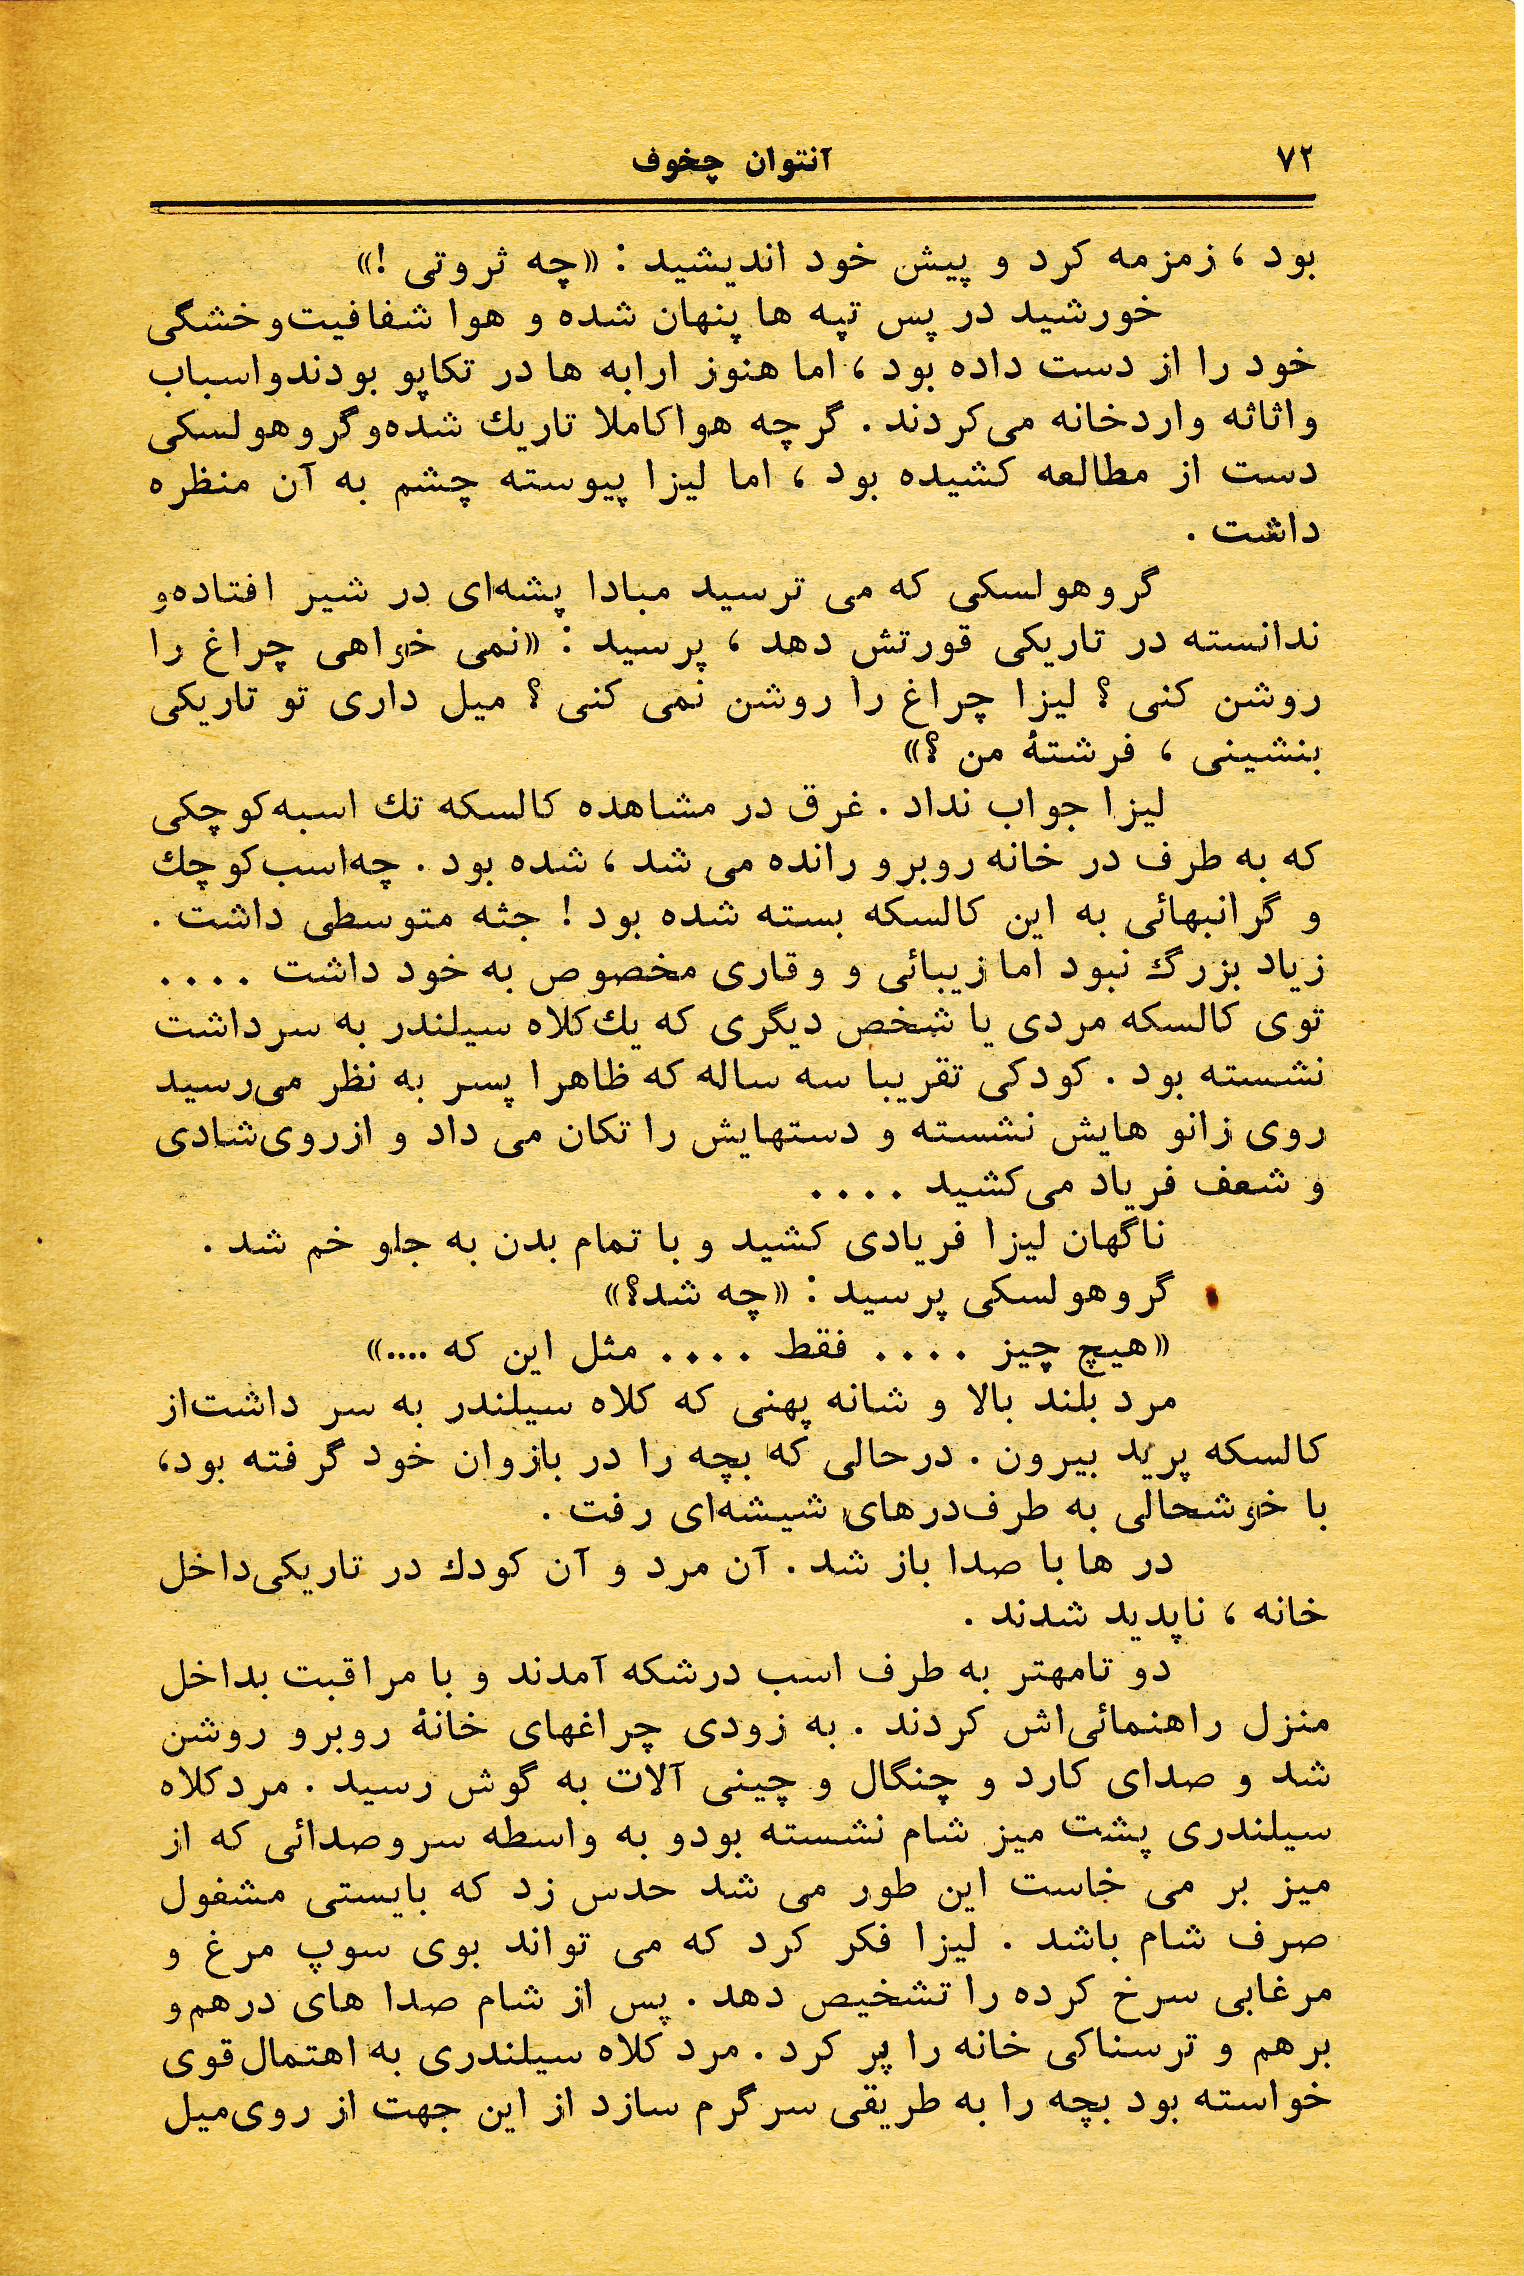 ۷۲
آنتوان چخوف
بود ، زمزمه کرد و پیش خود اندیشید : «چه ثروتی !»
خورشید در پس تپه ها پنهان شده و هوا شفافیت‌وخشگی
خود را از دست داده بود ، اما هنوز ارابه ها در تکاپو بودندواسباب
واثاثه واردخانه می‌کردند . گرچه هواکاملا تاریك شده‌وگروهولسکی
دست از مطالعه کشیده بود ، اما لیزا پیوسته چشم به آن منظره
داشت .
گروهولسکی که می ترسید مبادا پشه‌ای در شیر افتاده‌و
ندانسته در تاریکی قورتش دهد ، پرسید : «نمی خواهی چراغ را
روشن کنی ؟ لیزا چراغ را روشن نمی کنی ؟ میل داری تو تاریکی
بنشینی ، فرشتهٔ من ؟»
لیزا جواب نداد . غرق در مشاهده کالسکه تك اسبه‌کوچکی
که به طرف در خانه روبرو رانده می شد ، شده بود . چه‌اسب‌کوچك
و گرانبهائی به این کالسکه بسته شده بود ! جثه متوسطی داشت .
زیاد بزرگ نبود اما زیبائی و وقاری مخصوص به خود داشت ....
توی کالسکه مردی یا شخص دیگری که یك‌کلاه سیلندر به سرداشت
نشسته بود . کودکی تقریبا سه ساله که ظاهرا پسر به نظر می‌رسید
روی زانو هایش نشسته و دستهایش را تکان می داد و ازروی‌شادی
و شعف فریاد می‌کشید ....
ناگهان لیزا فریادی کشید و با تمام بدن به جلو خم شد .
گروهولسکی پرسید : «چه شد؟»
«هیچ چیز .... فقط .... مثل این که ....»
مرد بلند بالا و شانه پهنی که کلاه سیلندر به سر داشت‌از
کالسکه پرید بیرون . درحالی که بچه را در بازوان خود گرفته بود،
با خوشحالی به طرف‌درهای شیشه‌ای رفت .
در ها با صدا باز شد . آن مرد و آن کودك در تاریکی‌داخل
خانه ، ناپدید شدند .
دو تامهتر به طرف اسب درشکه آمدند و با مراقبت بداخل
منزل راهنمائی‌اش کردند . به زودی چراغهای خانهٔ روبرو روشن
شد و صدای کارد و چنگال و چینی آلات به گوش رسید . مردکلاه
سیلندری پشت میز شام نشسته بودو به واسطه سروصدائی که از
میز بر می خاست این طور می شد حدس زد که بایستی مشفول
صرف شام باشد . لیزا فکر کرد که می تواند بوی سوپ مرغ و
مرغابی سرخ کرده را تشخیص دهد . پس از شام صدا های درهم‌و
برهم و ترسناکی خانه را پر کرد . مرد کلاه سیلندری به اهتمال‌قوی
خواسته بود بچه را به طریقی سرگرم سازد از این جهت از روی‌میل